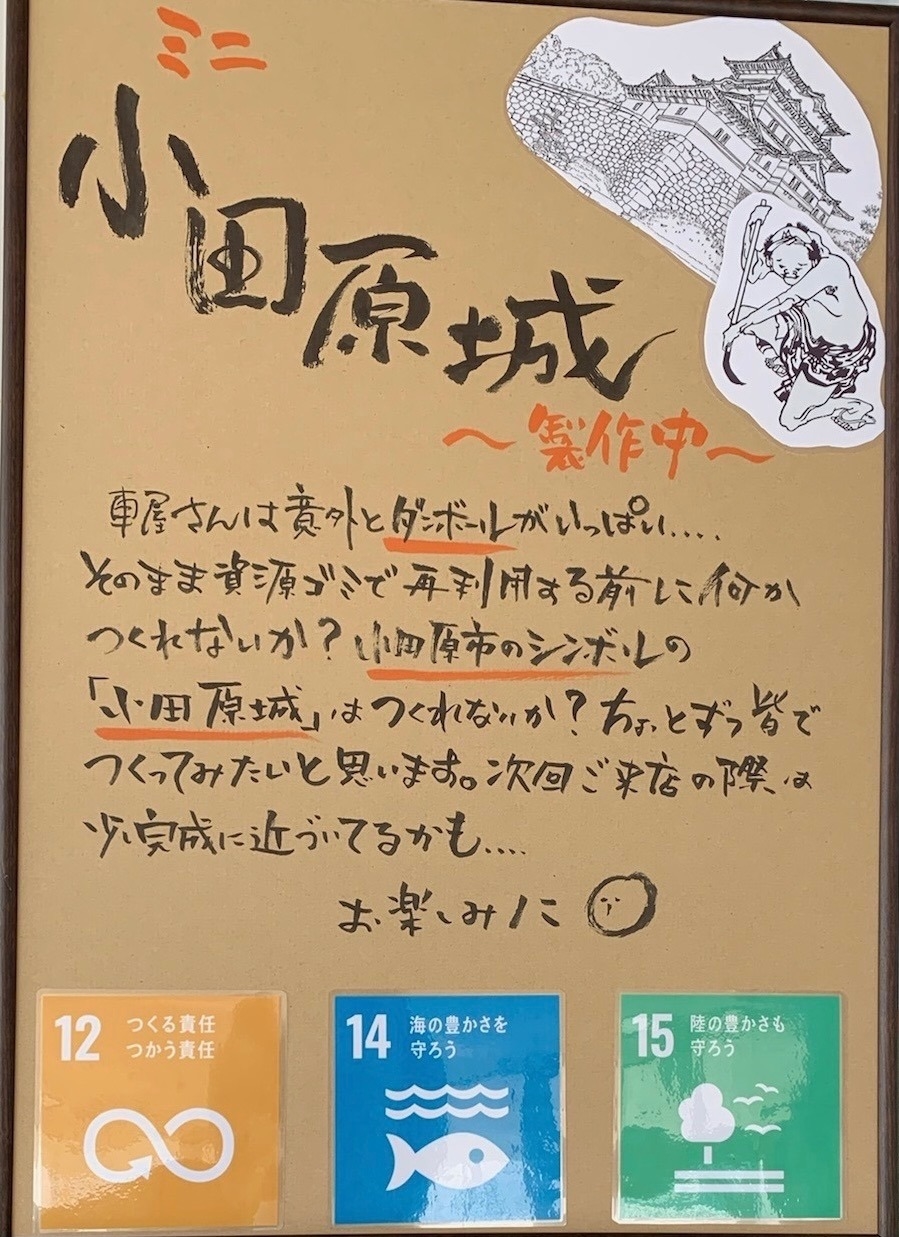 ミニ
小田原城
～製作中～
車屋さんは意外とダンボールがいっぱい....
そのまま資源ゴミで再利用する前に何か
つくれないか？小田原市のシンボルの
「小田原城」はつくれないか？ちょっとずつ皆で
つくってみたいと思います。次回ご来店の際は
少し完成に近づいてるかも....
お楽しみに
12 つくる責任
つかう責任
14 海の豊かさを
守ろう
15 陸の豊かさも
守ろう